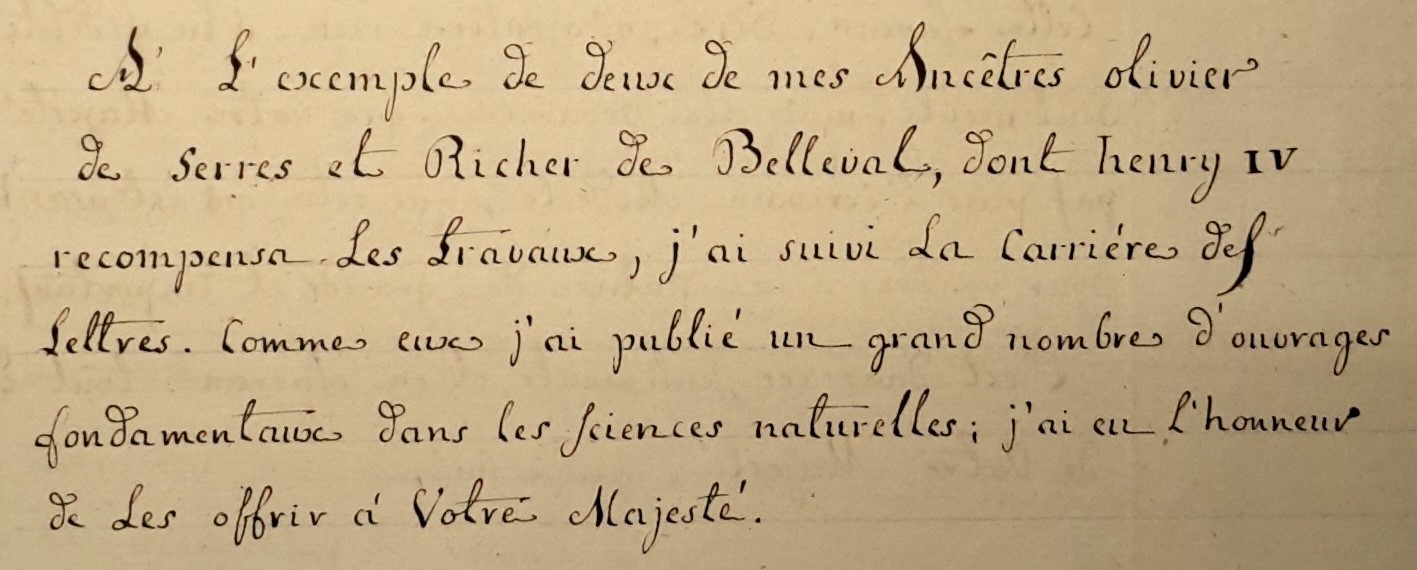 A' L'exemple de deux de mes Ancêtres olivier
de Serres et Richer de Belleval, dont henry IV
recompensa Les travaux, j'ai suivi La Carriére des
Lettres. Comme eux j'ai publié un grand nombre d'ouvrages
fondamentaux dans les sciences naturelles; j'ai eu l'honneur
de Les offrir á Votre Majesté.